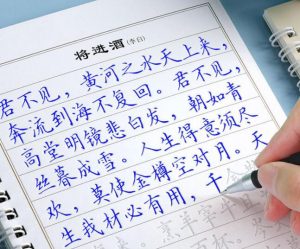 将进酒(李白)
君不见，黄河之水天上来，
奔流到海不复回。君不见，
高堂明镜悲白发，朝如青
丝暮成雪。人生得意须尽
欢，莫使金樽空对月。天
生我材必有用，千金
烹羊宰牛且